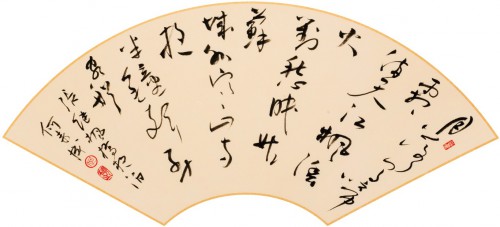 月
落烏啼霜
滿天江楓漁
火
對愁眠姑
蘇
城外寒山寺
夜
半鐘聲到
客船
張繼楓橋夜泊